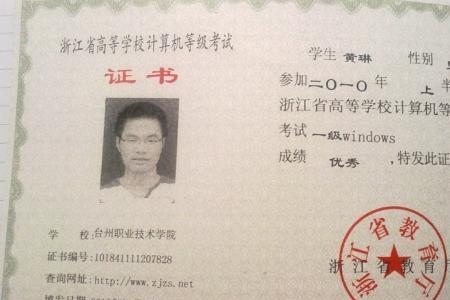 浙江省高等学校计算机等级考试
证书
学校:台州职业技术学院
证书编号:101841111207828
查询网址:http://www.zjzs.net
学生 黄琳 性别
参加二〇一〇年 上半
浙江省高等学校计算机等
考试 一级windows
成绩 优秀,特发此证
浙江省教育厅
浙江省教育厅